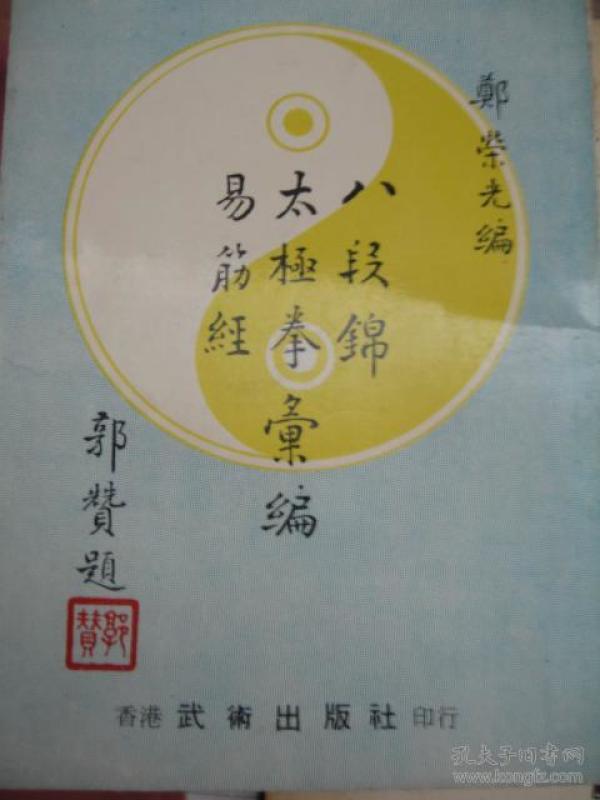 鄭榮光編
八段錦
太極拳彙編
易筋經
郭贊題
郭贊
香港 武術出版社 印行
孔夫子旧书网
www.kongfz.com